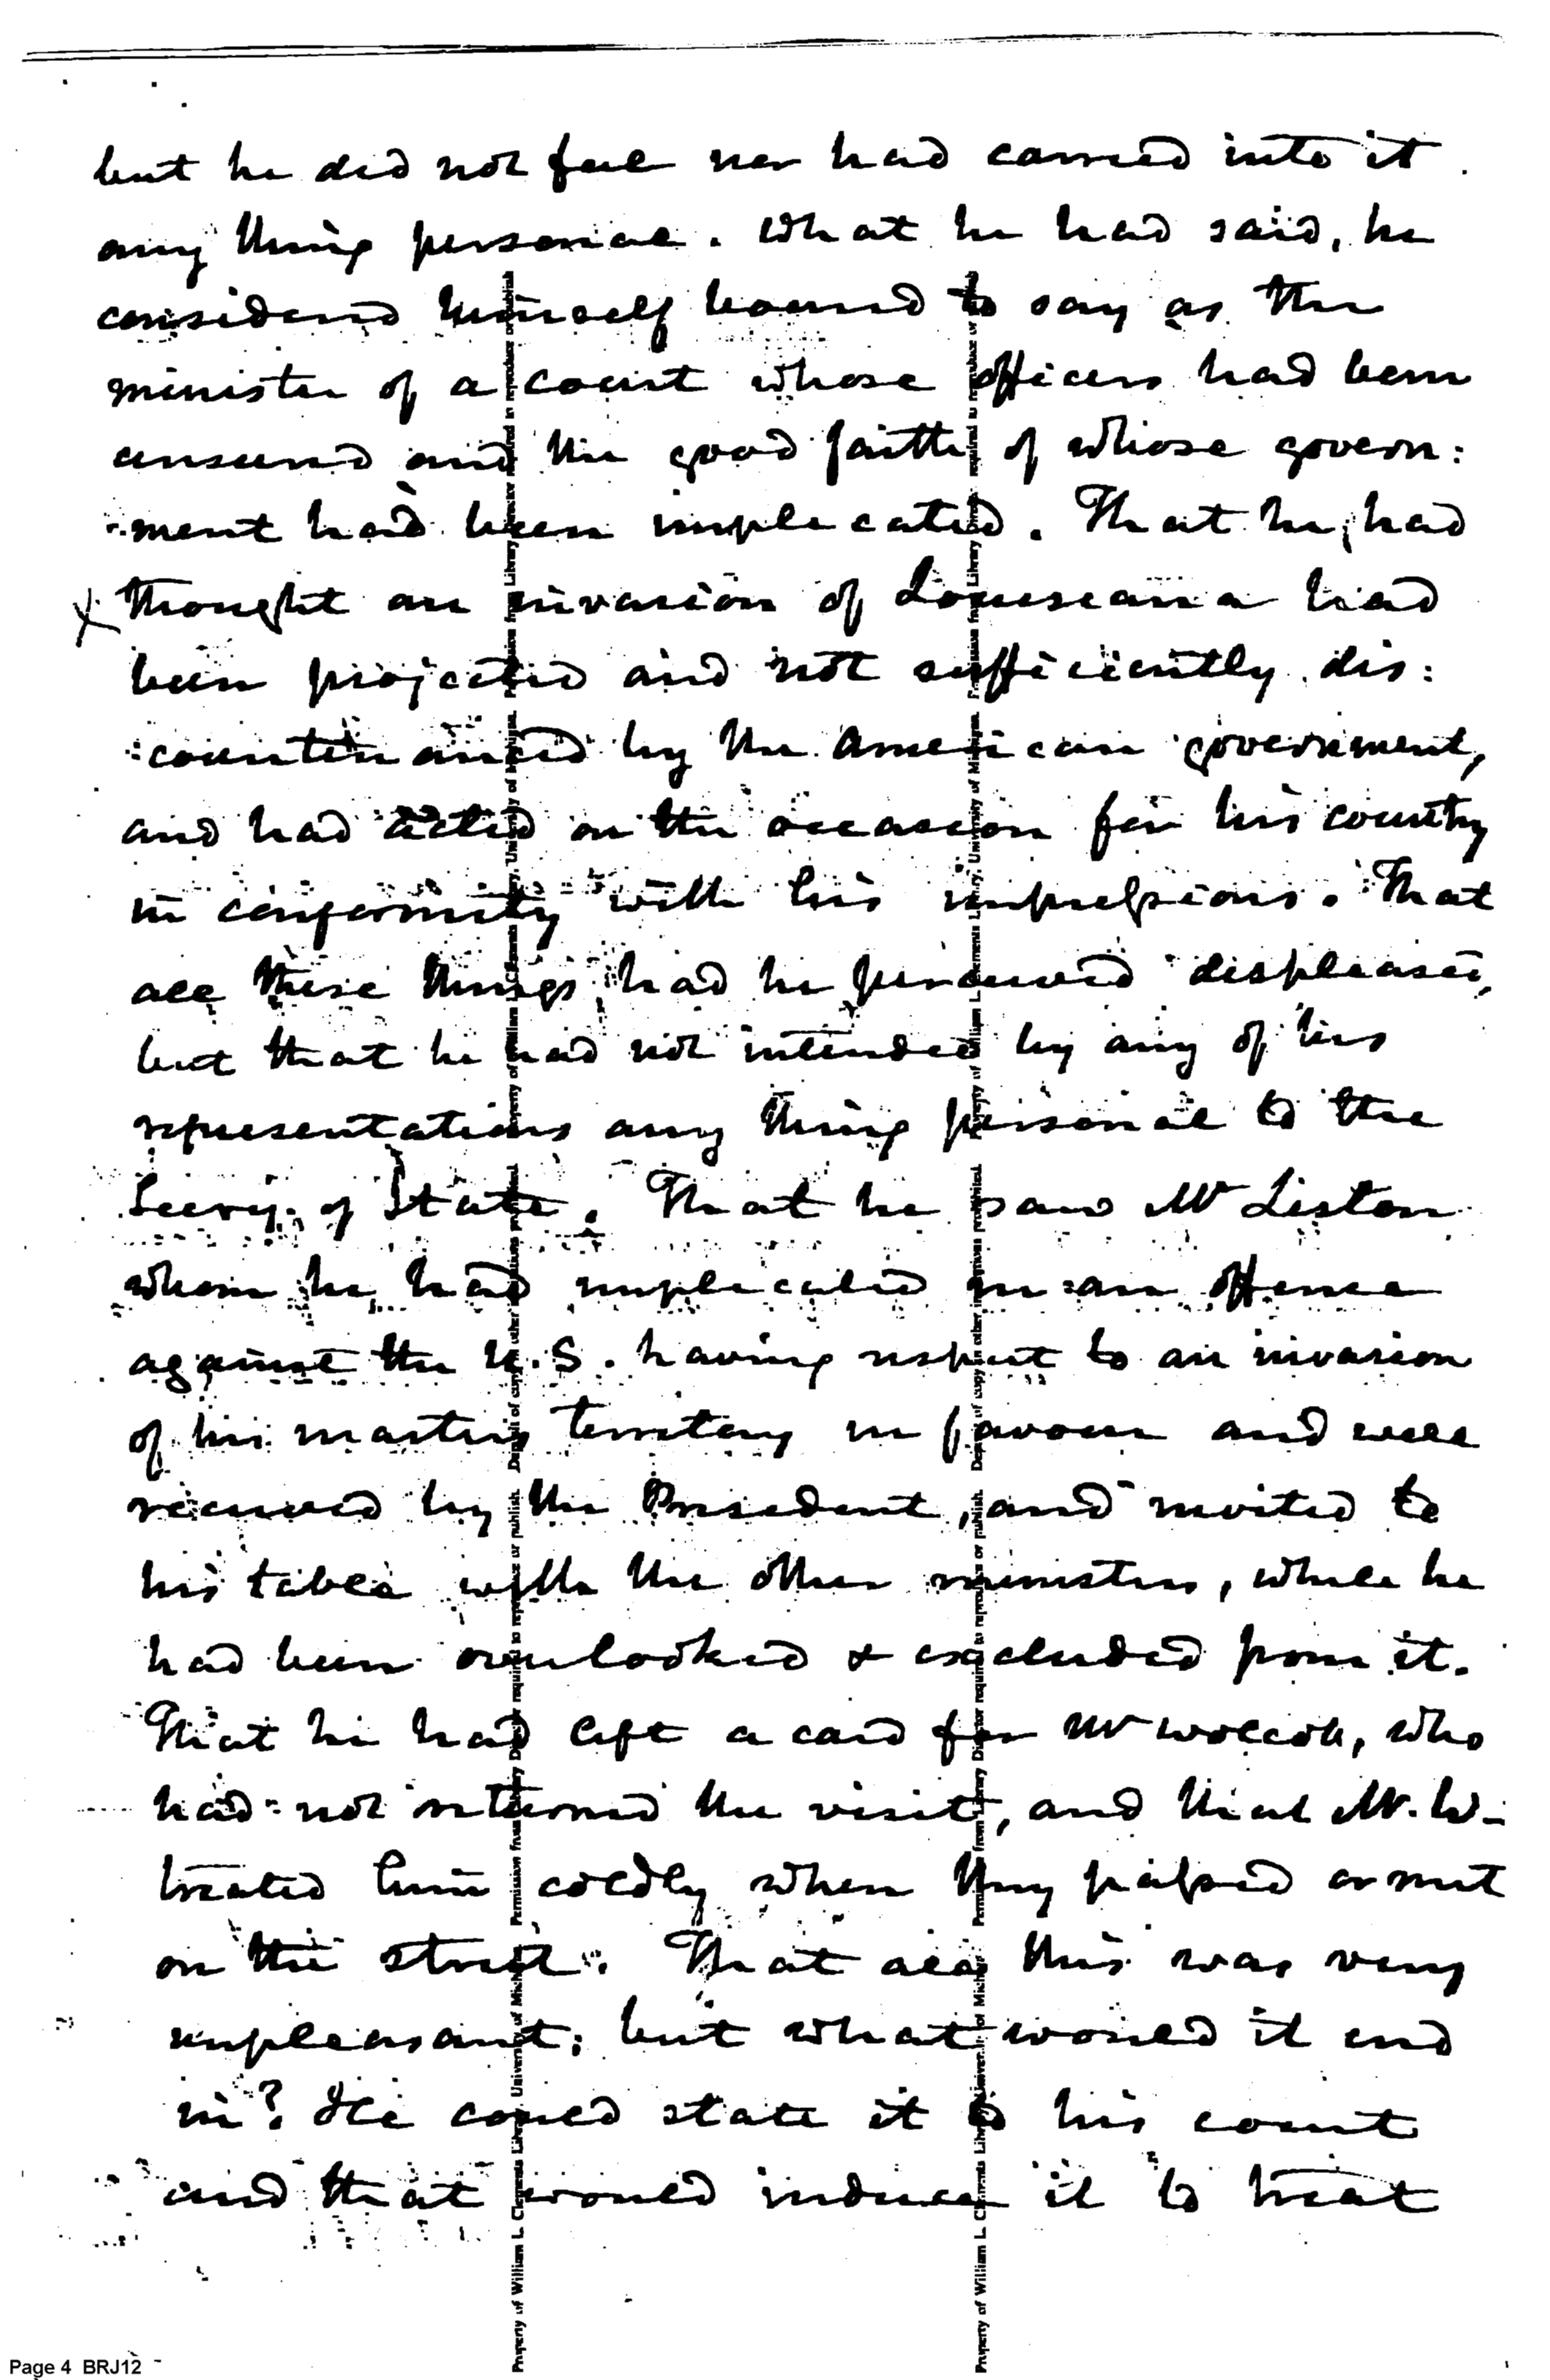 but he did not feel nor had carried into it
any thing personal. What he had said, he
considered himself bound to say as the
minister of a court whose officers had been
censured and the good faith of whose govern:
:ment had been implicated. That he had
x thought an invasion of Louiseana had
been projected and not sufficiently dis:
:countenanced by the American government,
and had acted on the occasion for his country
in conformity with his impressions. That
all these things had he perceived displeased,
but that he had not intended by any of his
representations any thing personal to the
Secry. of State. That he saw Mr Liston
whom he had implicated in an offence
against the U.S. having respect to an invasion
of his masters territory in favour and well
received by the President, and invited to
his table with the other ministers, while he
had been overlooked & excluded from it.
That he had left a card for Mr Wolcott, who
had not returned the visit, and that Mr. W-
treated him coldly when they passed or met
on the street. That all this was very
unpleasant; but what would it end
in? He could state it to his court
and that would induce it to treat
Property of William L. Clements Library, University of Michigan. Permission from Library Director required to reproduce or publish. Details of copyright other
Property of William L. Clements Library, University of Michigan. Permission from Library Director required to reproduce or publish. Details of copyright other
Page 4 BRJ12